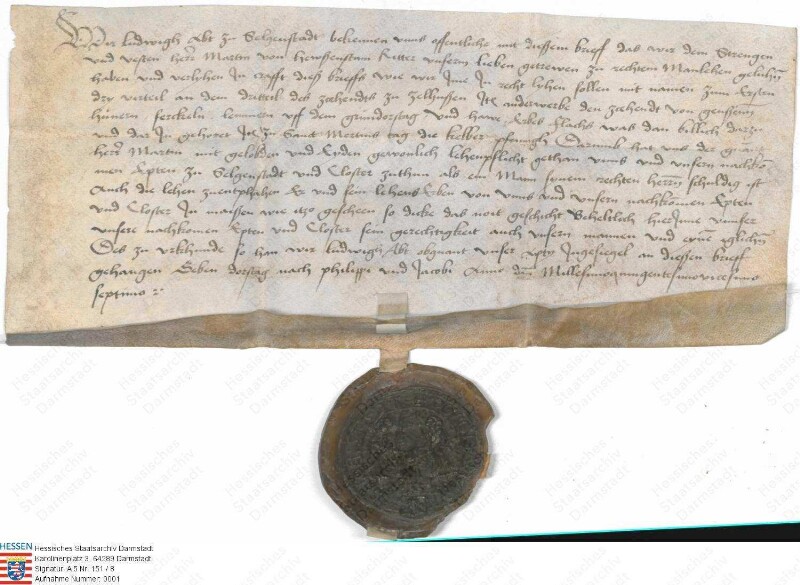 Wir Ludwigh Abt zu Selgenstadt bekennen unns offentliche mit diessem brieff das wir dem Strengen
und vesten hern Martin von Hewssenstam Ritter unsern lieben getrewen zu rechtem Manlehen geluhen
haben und verlihen In crafft dieß brieffs wie wir Ime In recht lyhen sollen mit namen zum Ersten
dry virteil an dem dritteil des zehendts zu Zelhussen Item anderwerbe den zehendt von genssenn
hunern ferckeln lemmern uff dem grundonstag und hawe Erbis flachs was dan billich darzu
und dar In gehoret Item zu Sanct Martins tag die pfennyg Darumb hat uns der
herr Martin mit gelobden und Eyden gewonlich lehenpflicht gethan unns und unsern nachko
men Epten zu Selgenstadt und Closter zuthun als ein Man seinem rechten herrn schuldig ist
Auch die lehen zuentphahen Er und sein lehens Erben von unns und unsern nachkomen Epten
und Closter In maissen wie itzo gescheen so dicke das noit geschicht Beheltlich hier Inne unnser
unsere nachkomen Epten und Closter sein gerechtigkeit auch unsern mannen und eyns iglichen
Des zu urkhunde so han wir Ludwigh Abt obgnant unser Epty Ingesiegel an diessen brieff
gehangen Geben dorstag nach philippi und Jacobi Anno dni Millesimoquingentesimovicesimo
septimo
HESSEN
Hessisches Staatsarchiv Darmstadt
Karolinenplatz 3, 64289 Darmstadt
Signatur: A 5 Nr. 151 / 8
Aufnahme Nummer: 0001